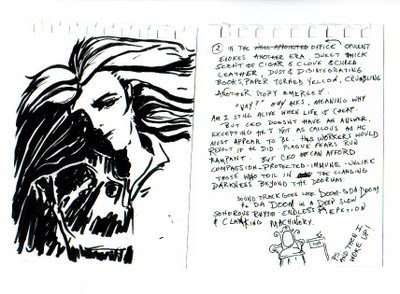 ② IN THE OFFICE OPULENT
EVOKES ANOTHER ERA SWEET THICK
SCENT OF CIGAR & CLOVE & CURED
LEATHER, DUST & DISINTEGRATING
BOOKS, PAPER TURNED YELLOW, CRUMBLING
ANOTHER STORY EMERGES.
"WHY?" ASKS, MEANING WHY
AM I STILL ALIVE WHEN LIFE IS CHEAP.
BUT CEO DOESN'T HAVE AN ANSWER,
EXCEPTING HE'S NOT AS CALLOUS AS HE
MUST APPEAR TO BE. HIS WORKERS WOULD
REVOLT IF HE DID. PLAGUE FEARS RUN
RAMPANT. BUT CEO CAN AFFORD
COMPASSION - PROTECTED - IMMUNE - UNLIKE
THOSE WHO TOIL IN THE CLANGING
DARKNESS BEYOND THE DOORWAY.
SOUND TRACK GOES LIKE DOOM-DA DOOM
DA DOOM IN A DEEP SLOW
SONOROUS RHYTHM - ENDLESS REPETITION
& CLANKING MACHINERY.
PS. AND THEN I
WOKE UP!